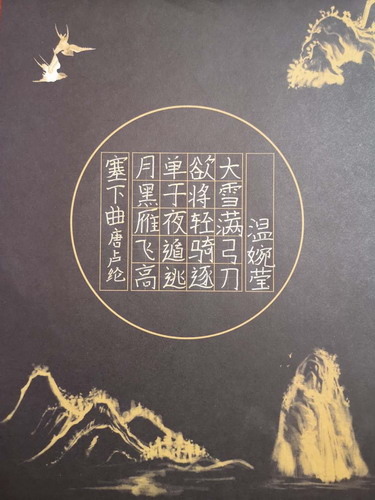 塞下曲 唐 卢纶
月黑雁飞高
单于夜遁逃
欲将轻骑逐
大雪满弓刀
温婉莹